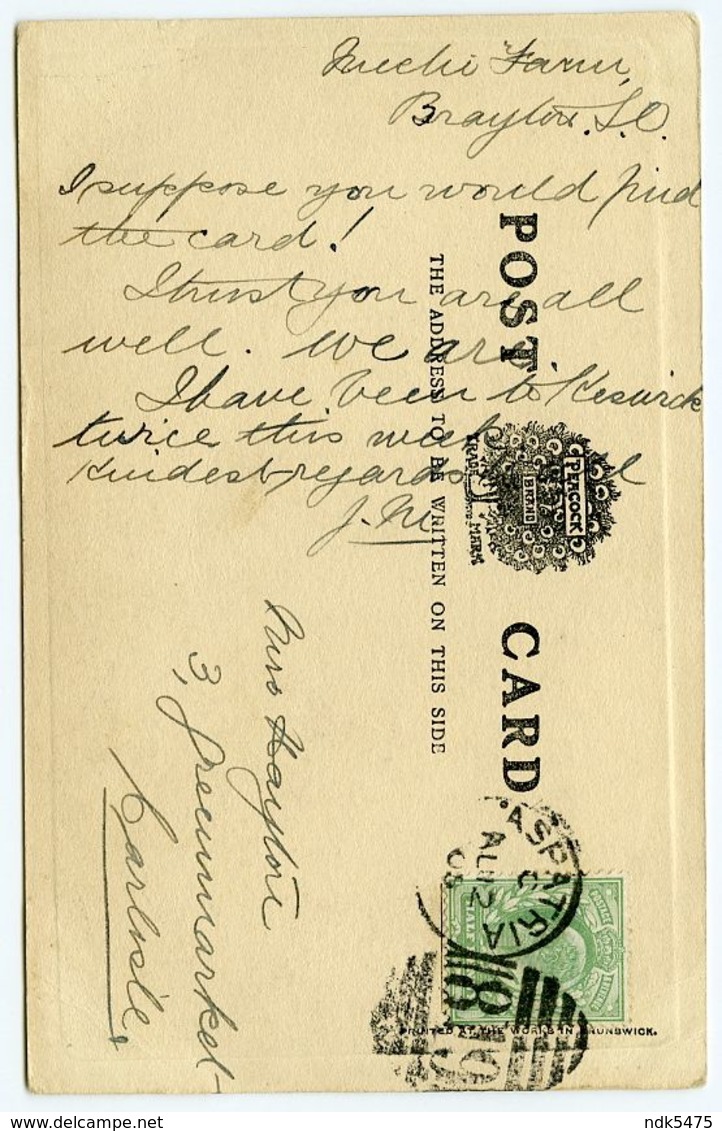 Mechi Farm,
Brayton. S.O.
I suppose you would find
the card!
I trust you are all
well. We are.
I have been to Keswick
twice this week
Kindest regards
J. M
POST CARD
THE ADDRESS TO BE WRITTEN ON THIS SIDE
PEACOCK
BRAND
TRADE MARK
3, Greenmarket
Carlisle.
ASPATRIA
C
AU 12
PRINTED AT THE WORKS IN BRUNSWICK.
ndk5475